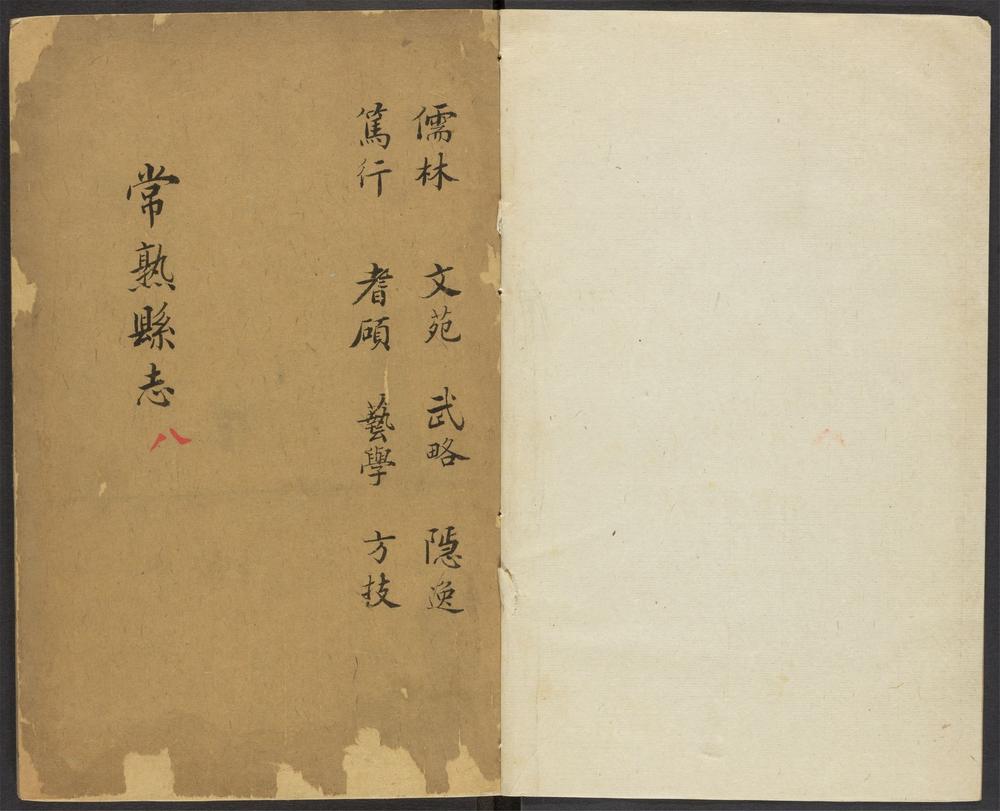 儒林 文苑 武略 隱逸
篤行 耆碩 藝學 方技
常熟縣志
八